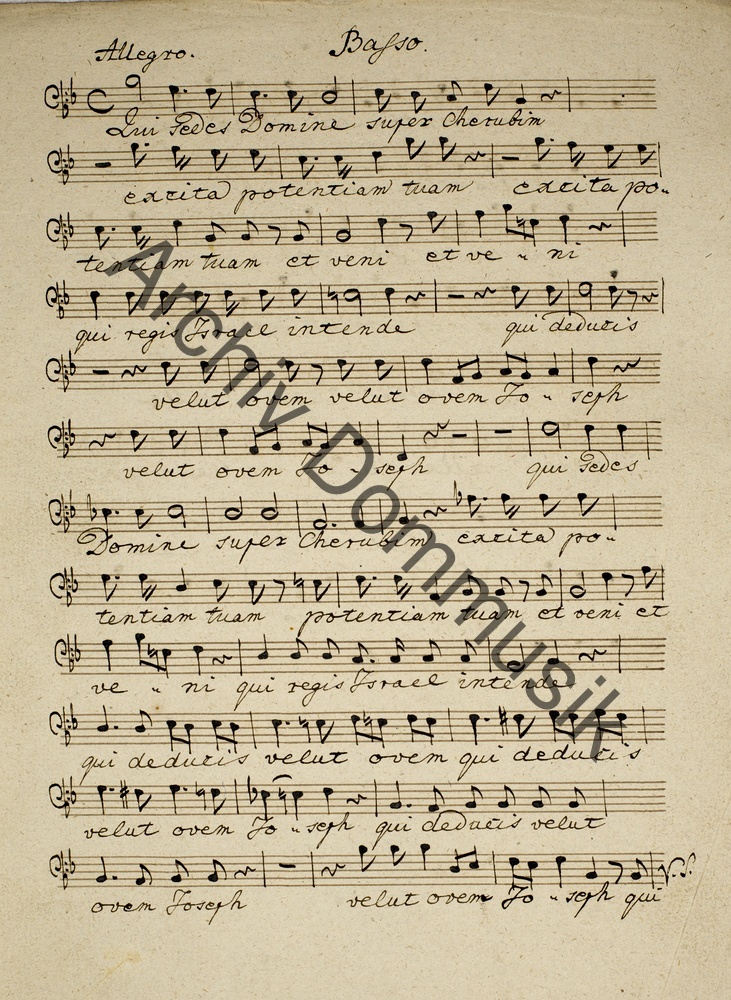 Allegro. Basso.
Qui sedes Domine super Cherubim
excita potentiam tuam excita po-
tentiam tuam et veni et ve - ni
qui regis Israel intende qui deducis
velut ovem velut ovem Jo - seph
velut ovem Jo - seph qui sedes
Domine super Cherubim excita po-
tentiam tuam potentiam tuam et veni et
ve - ni qui regis Israel intende
qui deducis velut ovem qui deducis
velut ovem Jo - seph qui deducis velut
ovem Joseph velut ovem Jo - seph qui
V.S.
Archiv Dommusik